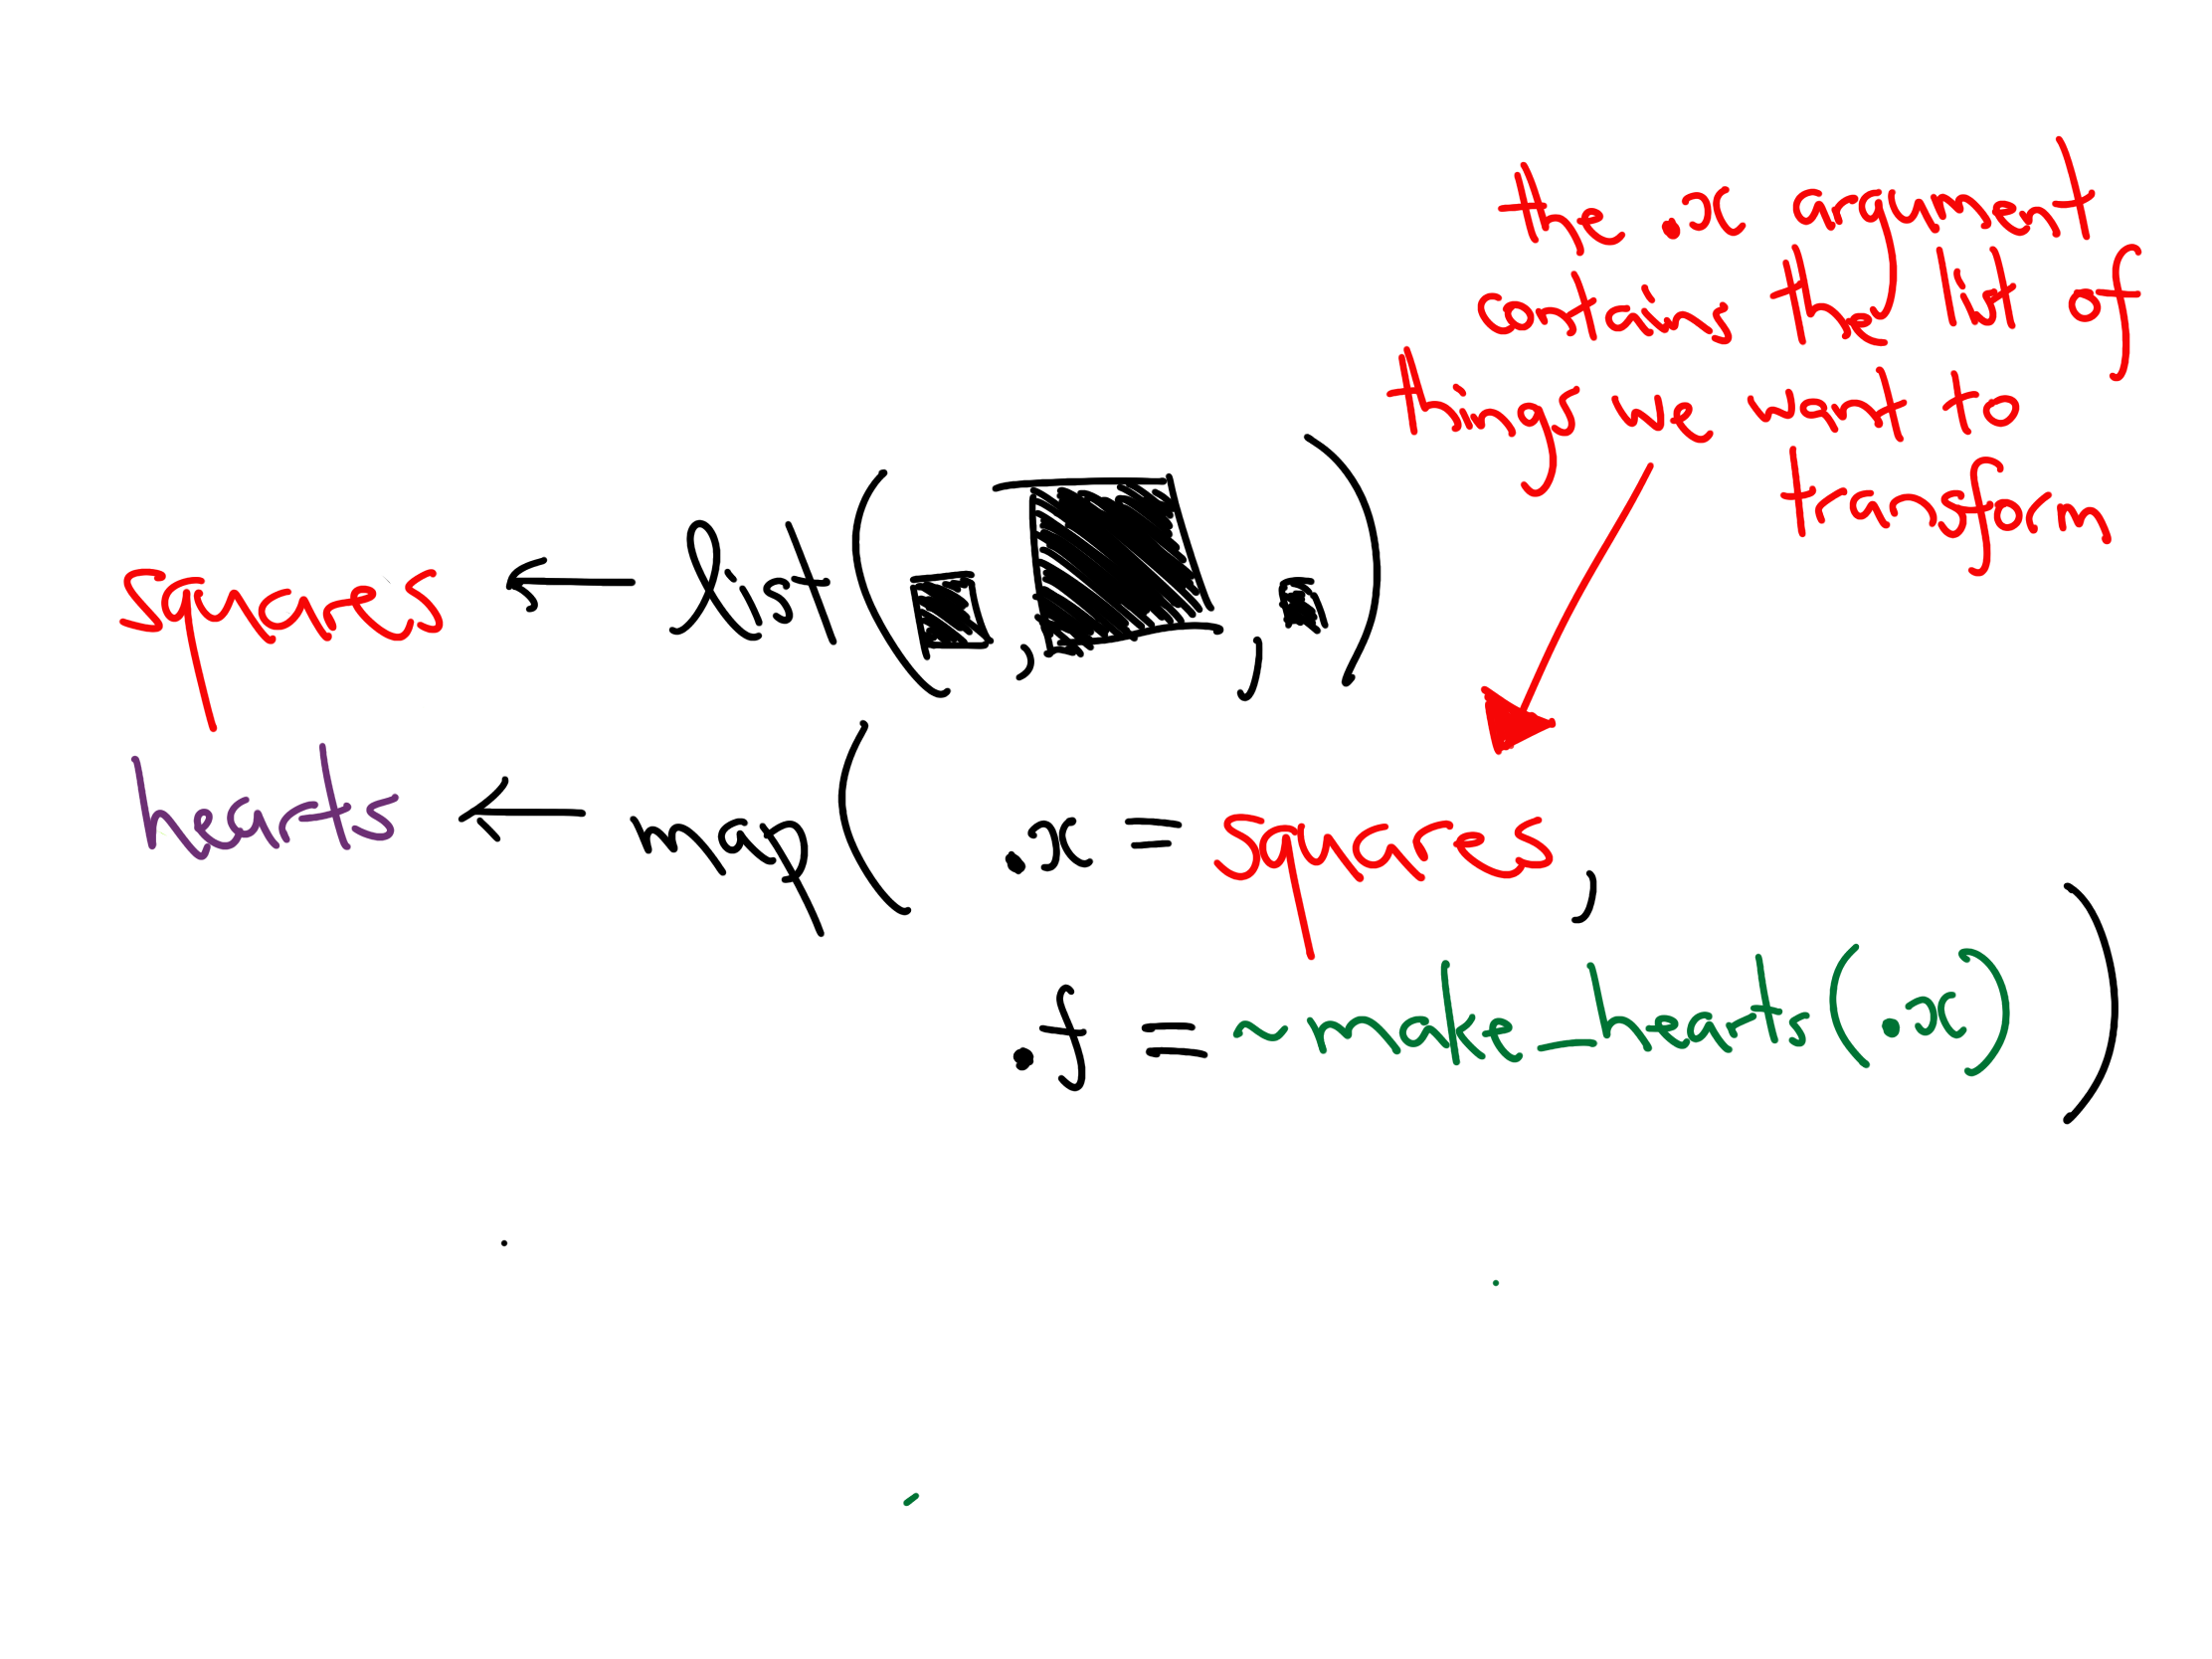 the .x argument
contains the list of
things we want to
transform
squares ← list( , , )
hearts ← map( .x = squares,
.f = ~ make_hearts(.x) )